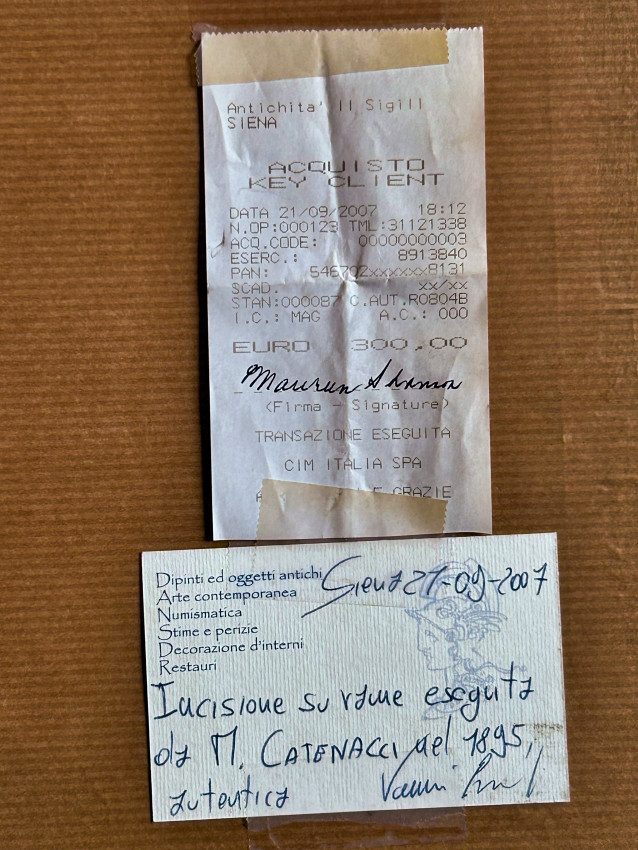 Antichita' Il Sigill
SIENA
ACQUISTO
KEY CLIENT
DATA 21/09/2007 18:12
N.OP:000123 TML:31121338
ACQ.CODE: 00000000003
ESERC.: 8913840
PAN: 546702xxxxxx8131
SCAD. xx/xx
STAN:000087 C.AUT.R0804B
I.C.: MAG A.C.: 000
EURO 300,00
(Firma - Signature)
TRANSAZIONE ESEGUITA
CIM ITALIA SPA
E GRAZIE
Dipinti ed oggetti antichi
Arte contemporanea
Numismatica
Stime e perizie
Decorazione d'interni
Restauri
Siena 21-09-2007
Incisione su rame eseguita
da M. CATENACCI nel 1895,
autentica